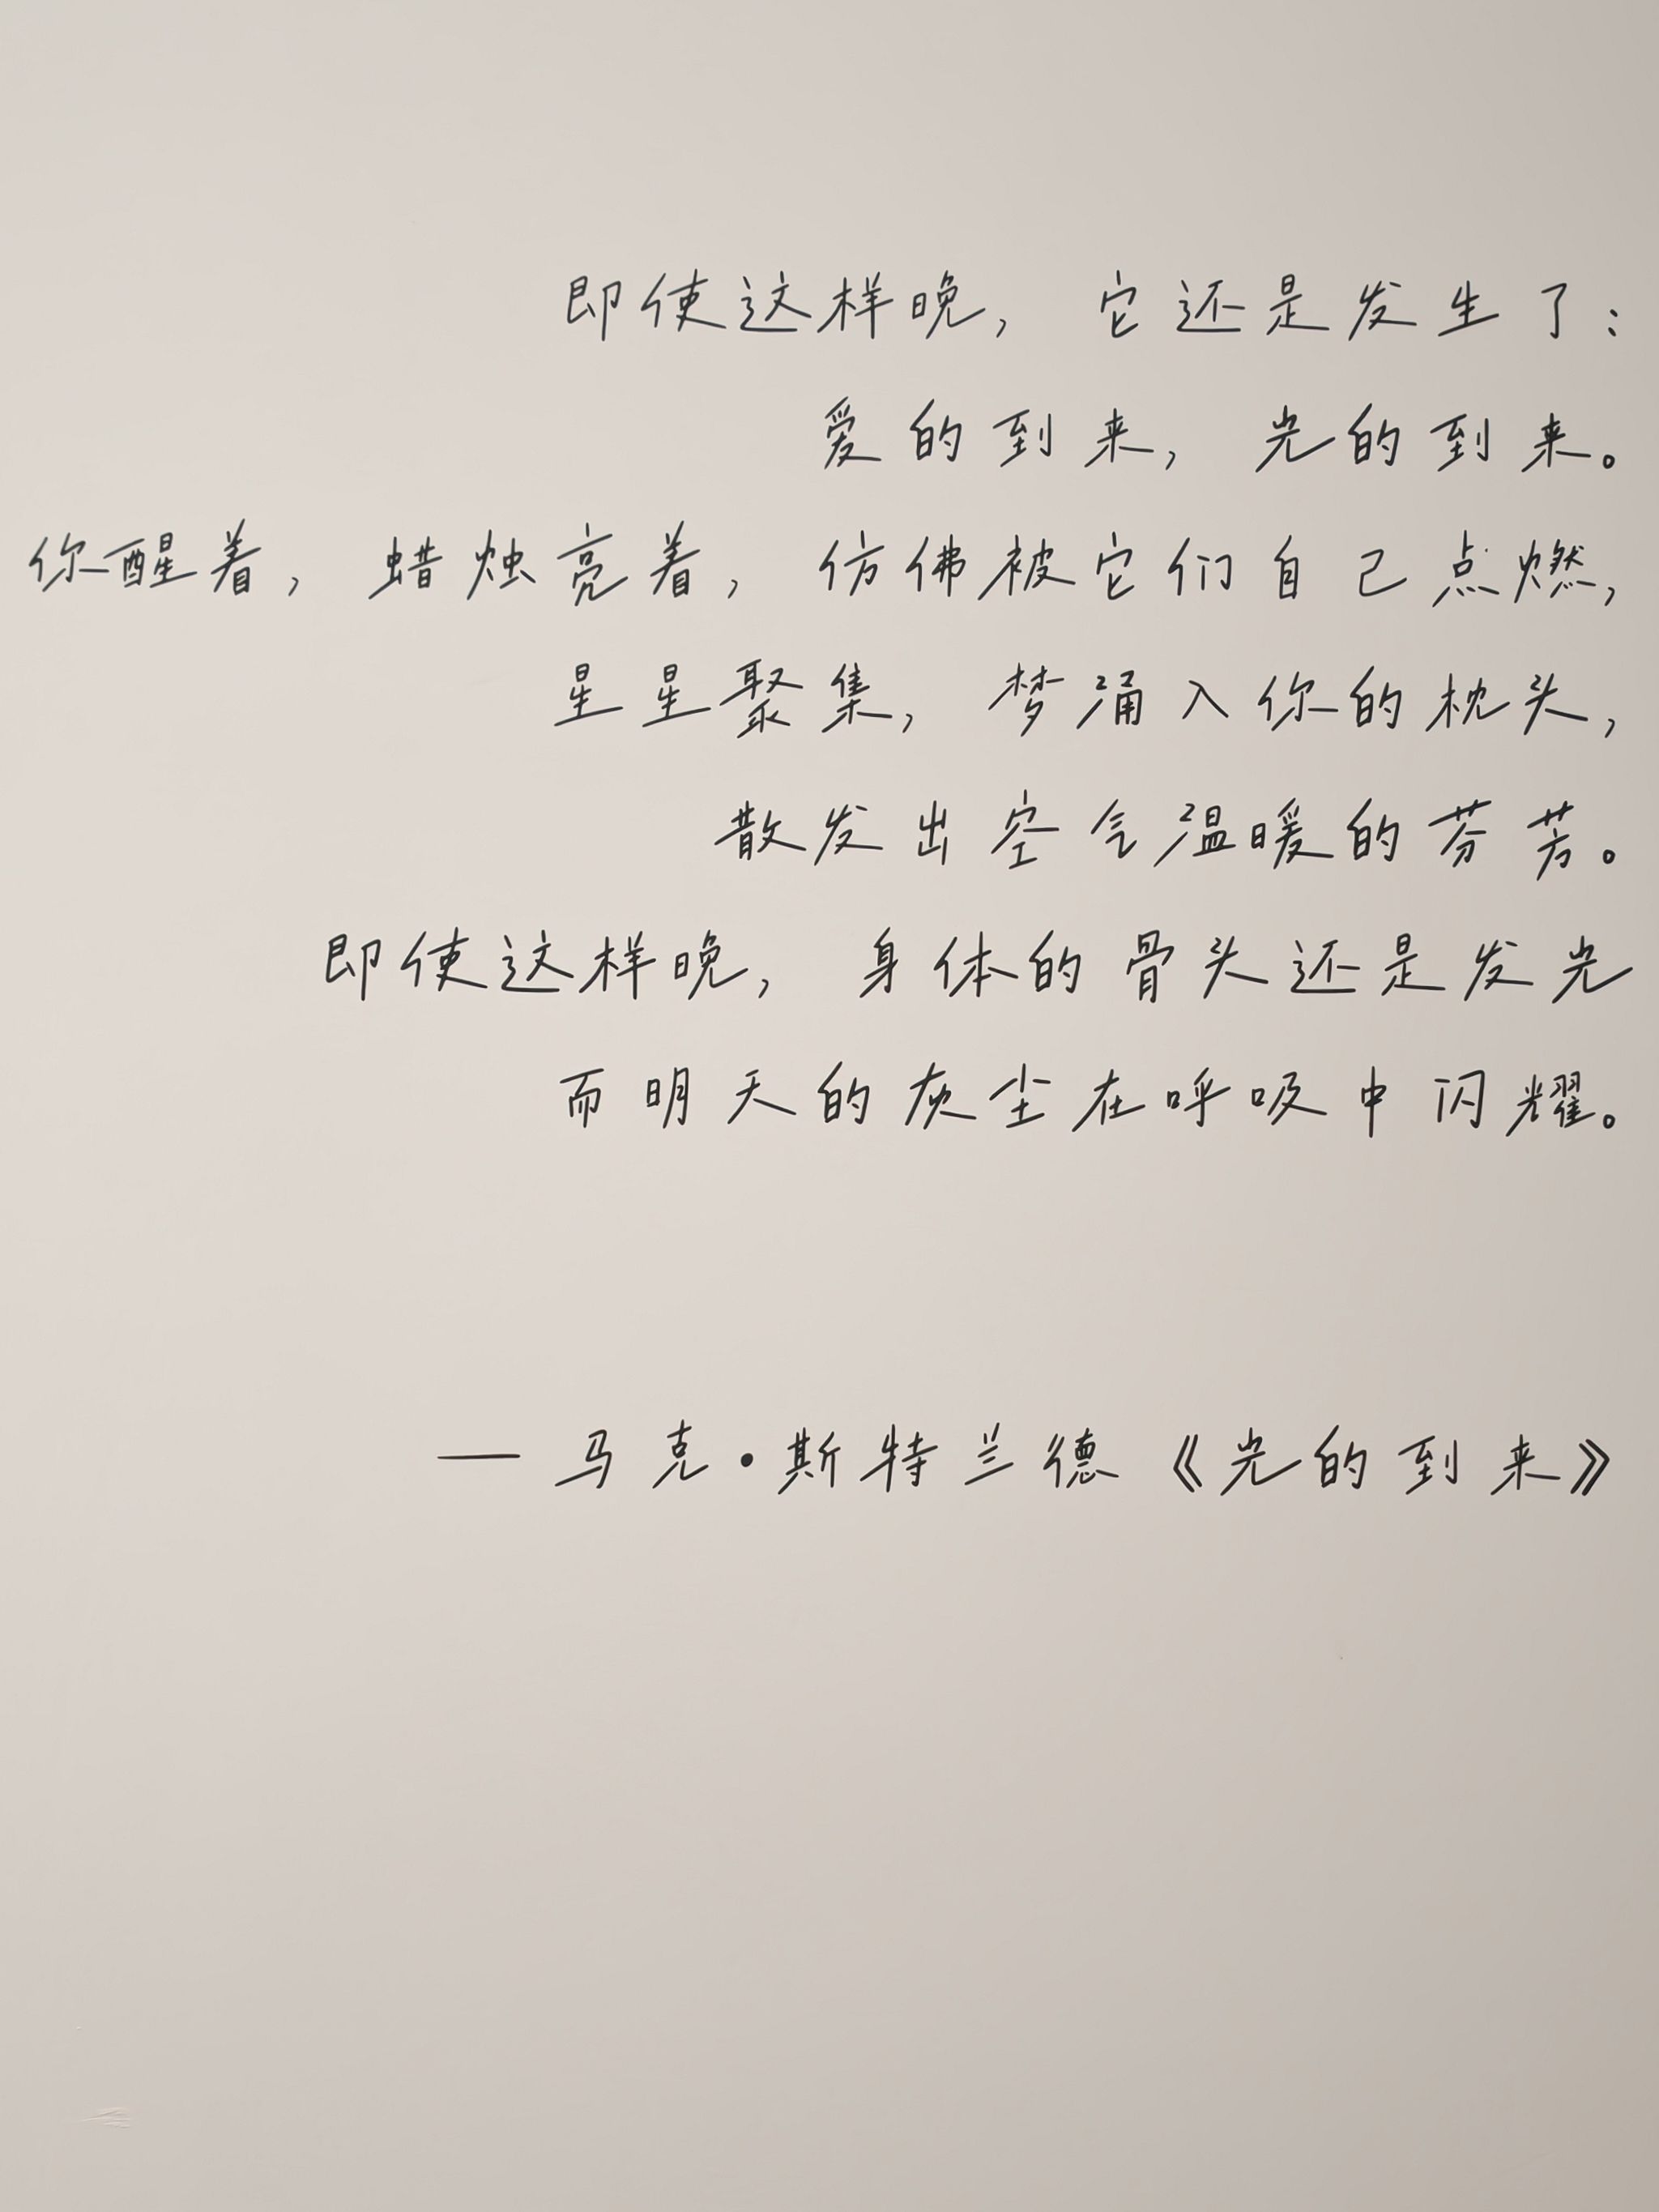 即使这样晚，它还是发生了：
爱的到来，光的到来。
你醒着，蜡烛亮着，仿佛被它们自己点燃，
星星聚集，梦涌入你的枕头，
散发出空气温暖的芬芳。
即使这样晚，身体的骨头还是发光
而明天的灰尘在呼吸中闪耀。
— 马克·斯特兰德《光的到来》